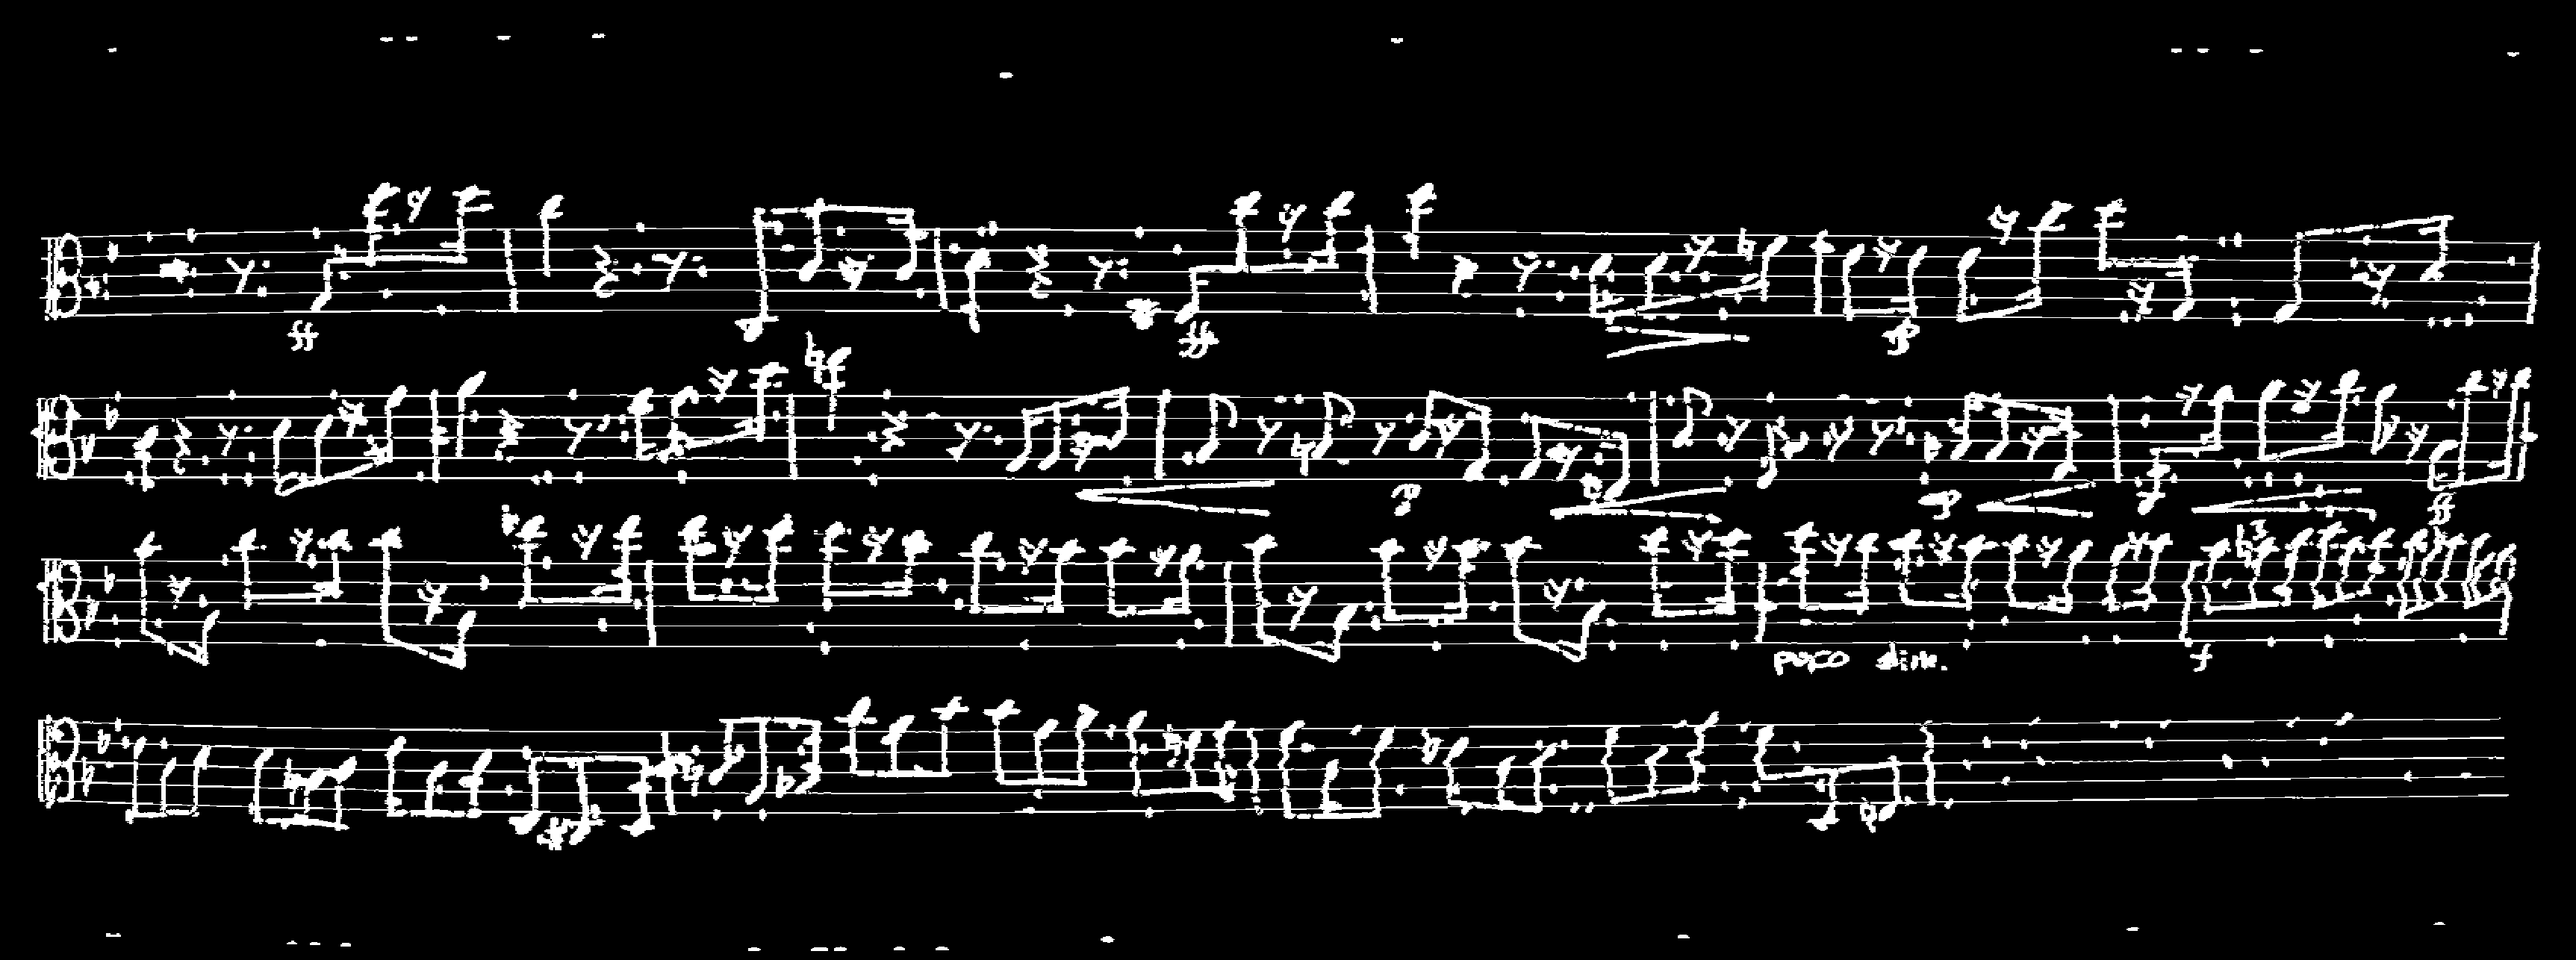 ff ff p
p p ff
poco dim. f
3